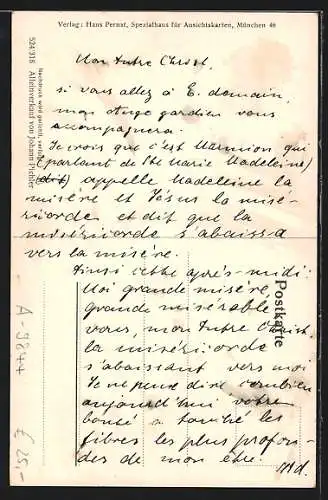 Verlag: Hans Pernat, Spezialhaus für Ansichtskarten, München 46
524/315
Nachdruck wird gerichtl. verfolgt
Alleinverkauf von Johann Pichler
Postkarte
Mon Autre Christ,
si vous allez à E. demain,
mon Ange gardien vous
accompagnera.
Je crois que c'est Marmion qui
(parlant de Ste Marie Madeleine)
(dit) appelle Madeleine la
misère et Jésus la misé-
ricorde et dit que la
miséricorde s'abaissa
vers la misère.
Ainsi cette après-midi:
Moi grande misère
grande misérable
vous, mon Autre Christ
la miséricorde
s'abaissant vers moi
Je ne peux dire combien
aujourd'hui votre
bonté a touché les
fibres les plus profon-
des de mon être.
Md.
A-9844
£ 25,-